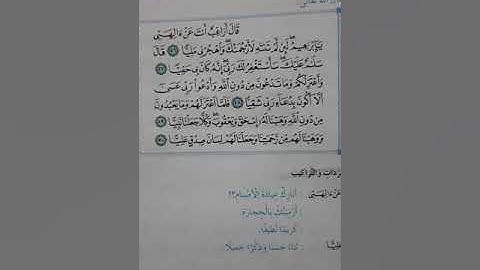 قَالَ أَرَاغِبٌ أَنتَ عَنْ ءَالِهَتِى
يَٰٓإِبْرَٰهِيمُ لَئِن لَّمْ تَنتَهِ لَأَرْجُمَنَّكَ وَٱهْجُرْنِى مَلِيًّا ٤٦ قَالَ
سَلَٰمٌ عَلَيْكَ سَأَسْتَغْفِرُ لَكَ رَبِّىٓ إِنَّهُۥ كَانَ بِى حَفِيًّا ٤٧
وَأَعْتَزِلُكُمْ وَمَا تَدْعُونَ مِن دُونِ ٱللَّهِ وَأَدْعُوا۟ رَبِّى عَسَىٰٓ
أَلَّآ أَكُونَ بِدُعَآءِ رَبِّى شَقِيًّا ٤٨ فَلَمَّا ٱعْتَزَلَهُمْ وَمَا يَعْبُدُونَ
مِن دُونِ ٱللَّهِ وَهَبْنَا لَهُۥٓ إِسْحَٰقَ وَيَعْقُوبَ وَكُلًّا جَعَلْنَا نَبِيًّا ٤٩
وَوَهَبْنَا لَهُم مِّن رَّحْمَتِنَا وَجَعَلْنَا لَهُمْ لِسَانَ صِدْقٍ عَلِيًّا ٥٠
وَالتَّرَاكِيبِ
عَنْ ءَالِهَتِى : أَتَارِكٌ عِبَادَةَ الْأَصْنَامِ؟!
: أَرْمِيَنَّكَ بِالْحِجَارَةِ.
: كَرِيمًا لَطِيفًا.
عَلِيًّا : ثَنَاءً حَسَنًا وَذِكْرًا جَمِيلًا